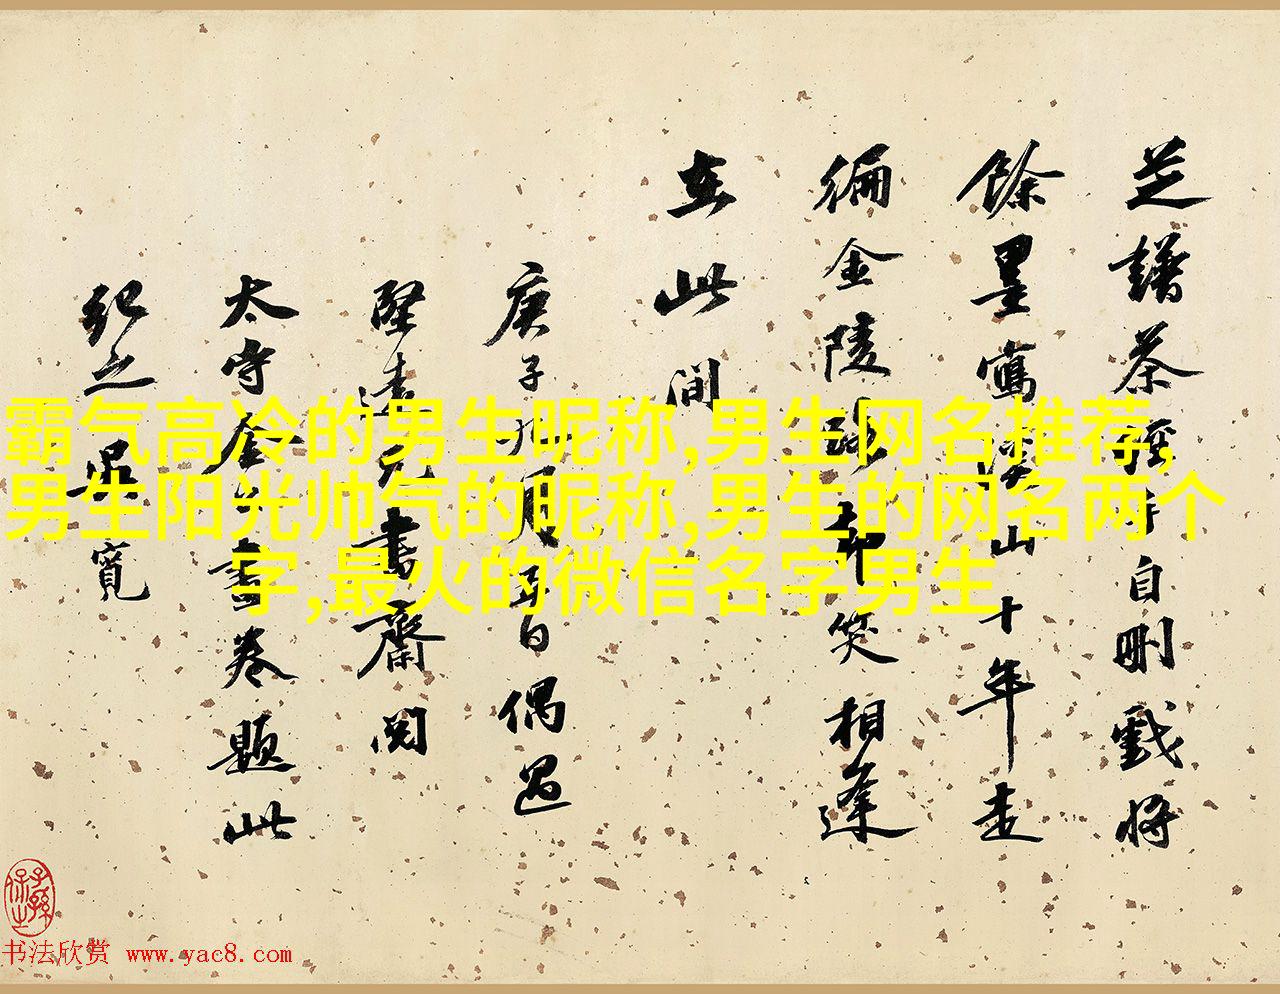 芝譜茶經手自刪戲將
餘墨寫溪山十年走
徧金陵却笑相逢
在此間
庚子九月日偶過
堅遠兄書齋閱
太守書卷題此
紀之吳寬
霸气高冷的男生昵称,男生网名推荐,
男生阳光帅气的昵称,男生的网名两个
字,最火的微信名字男生
书法欣赏 www.yac8.com